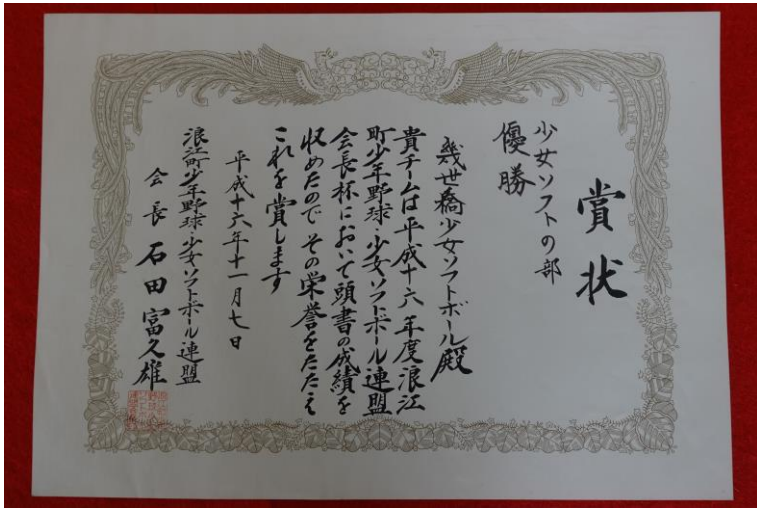 賞状
少女ソフトの部
優勝
幾世橋少女ソフトボール殿
貴チームは平成十六年度浪江
町少年野球・少女ソフトボール連盟
会長杯において頭書の成績を
収めたのでその栄誉をたたえ
これを賞します
平成十六年十一月七日
浪江町少年野球・少女ソフトボール連盟
会長 石田富久雄